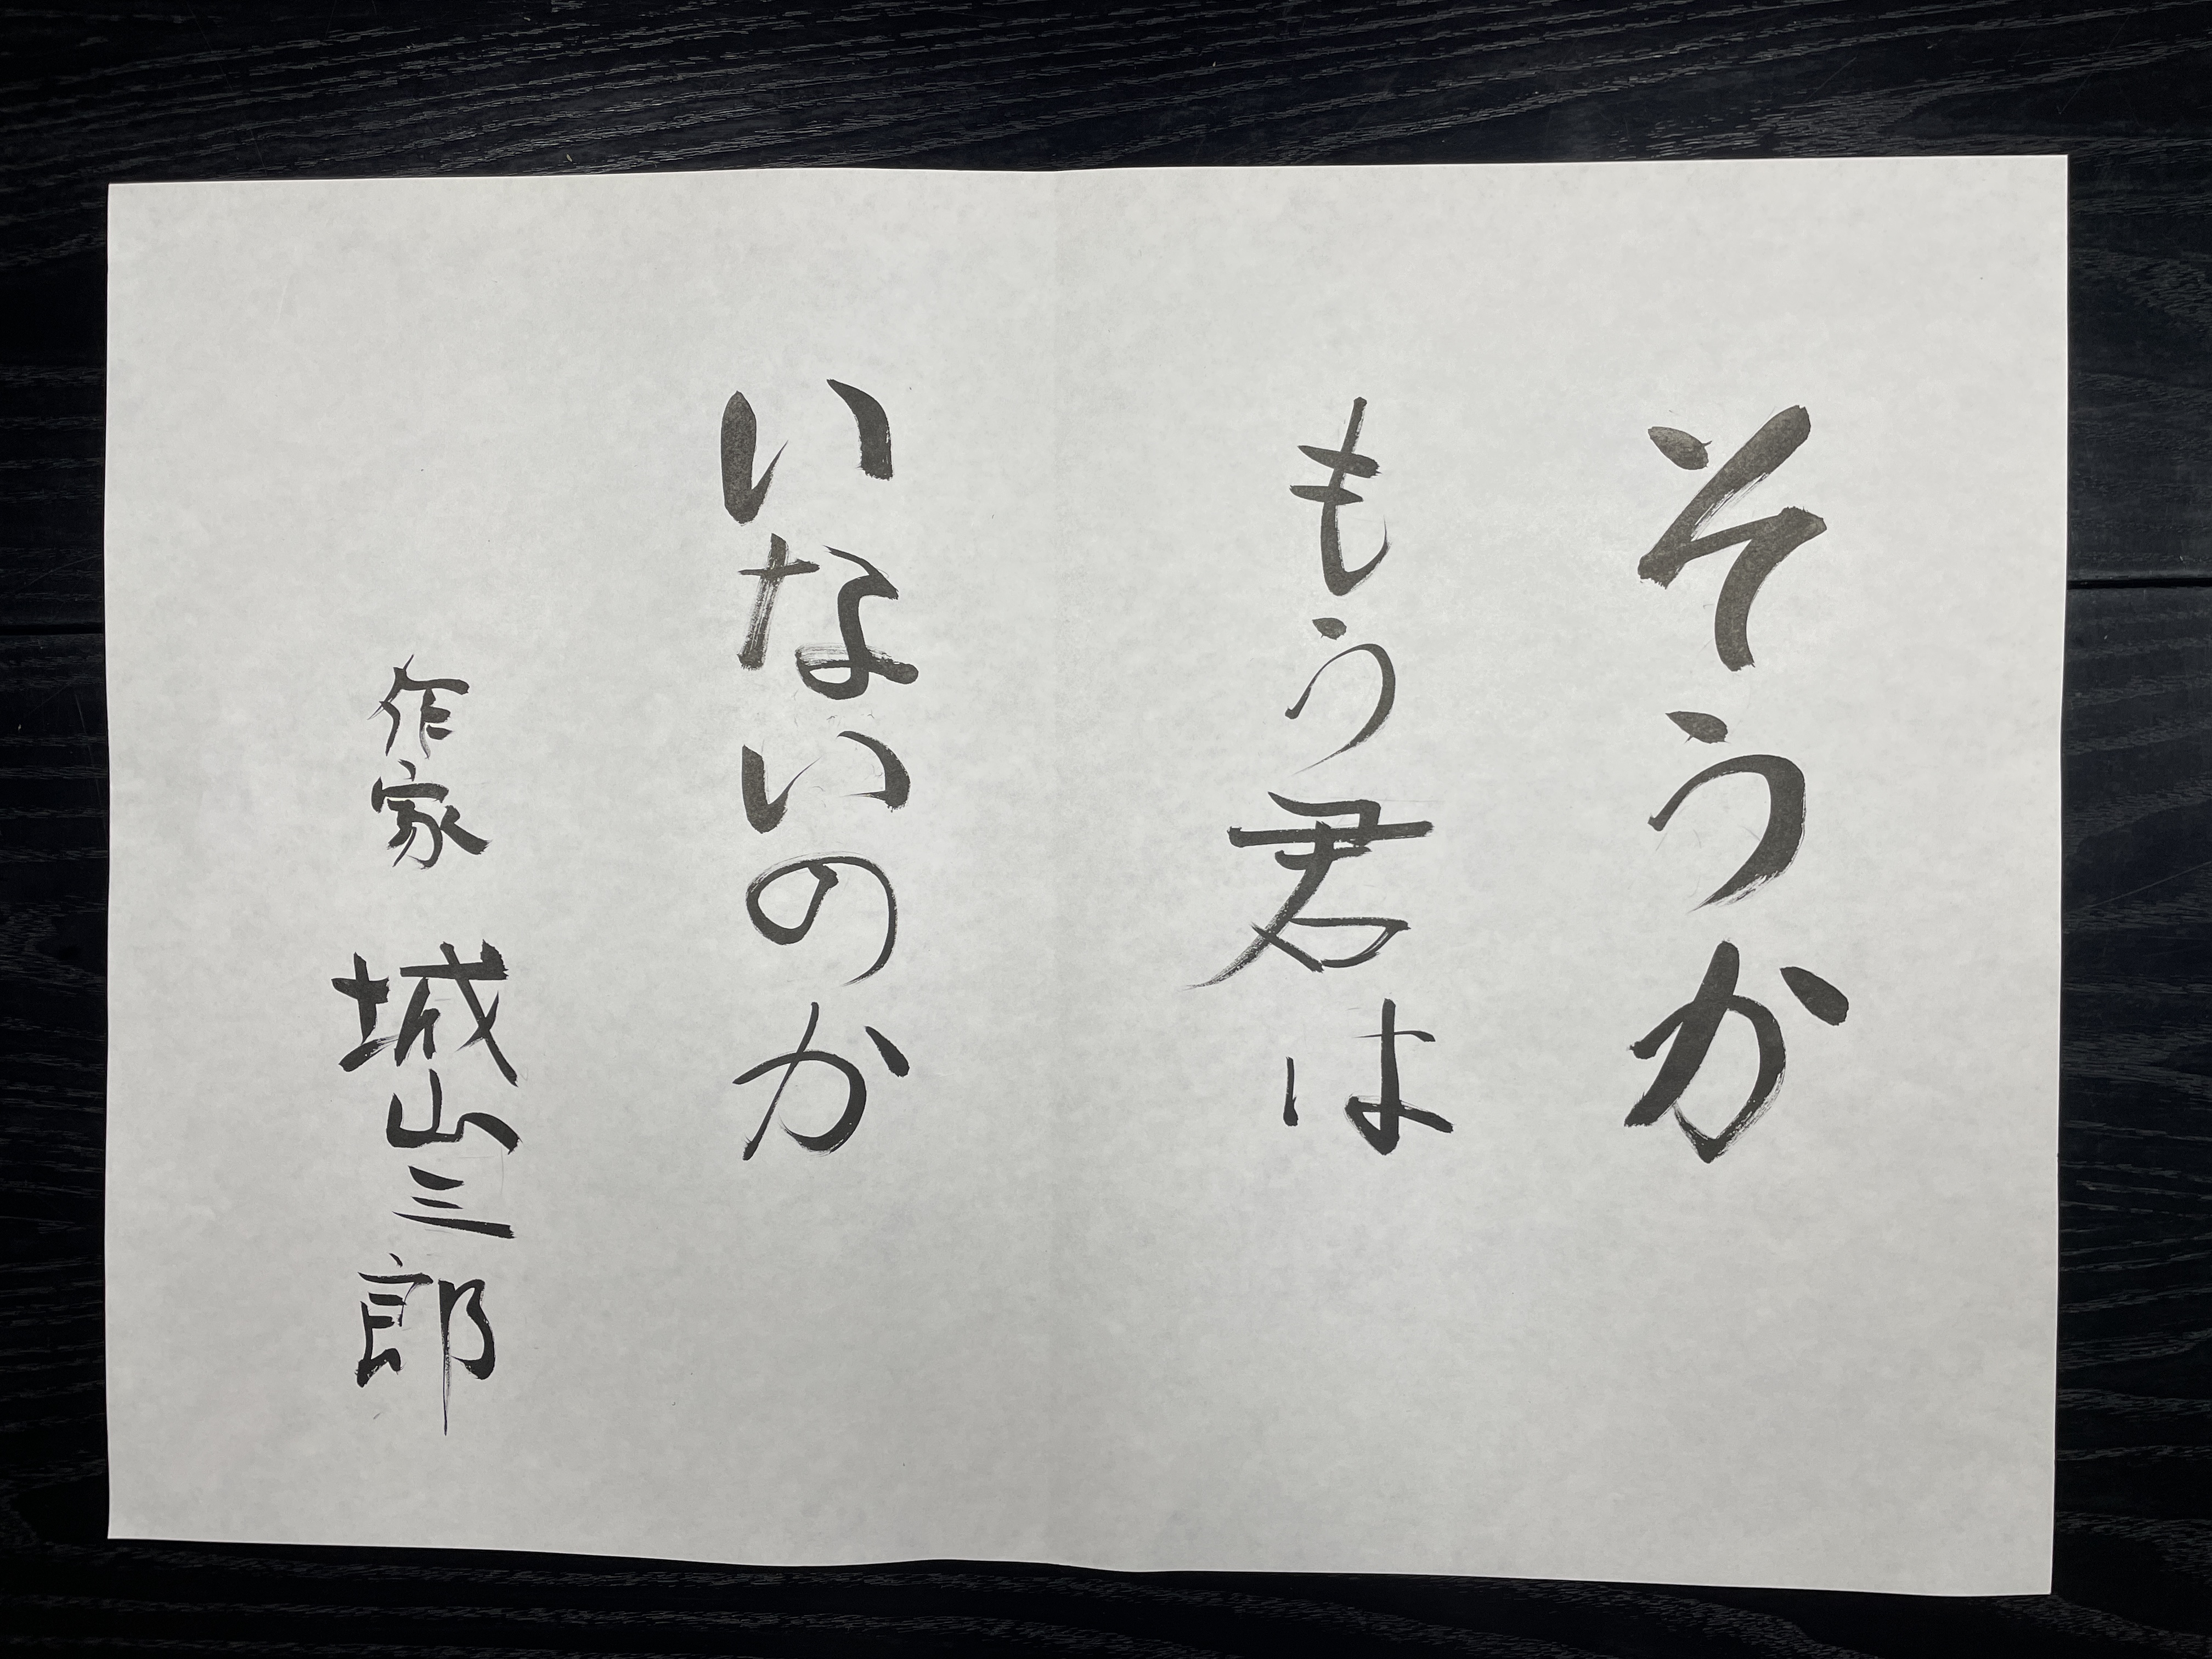 そうか
もう君は
いないのか
作家 城山三郎